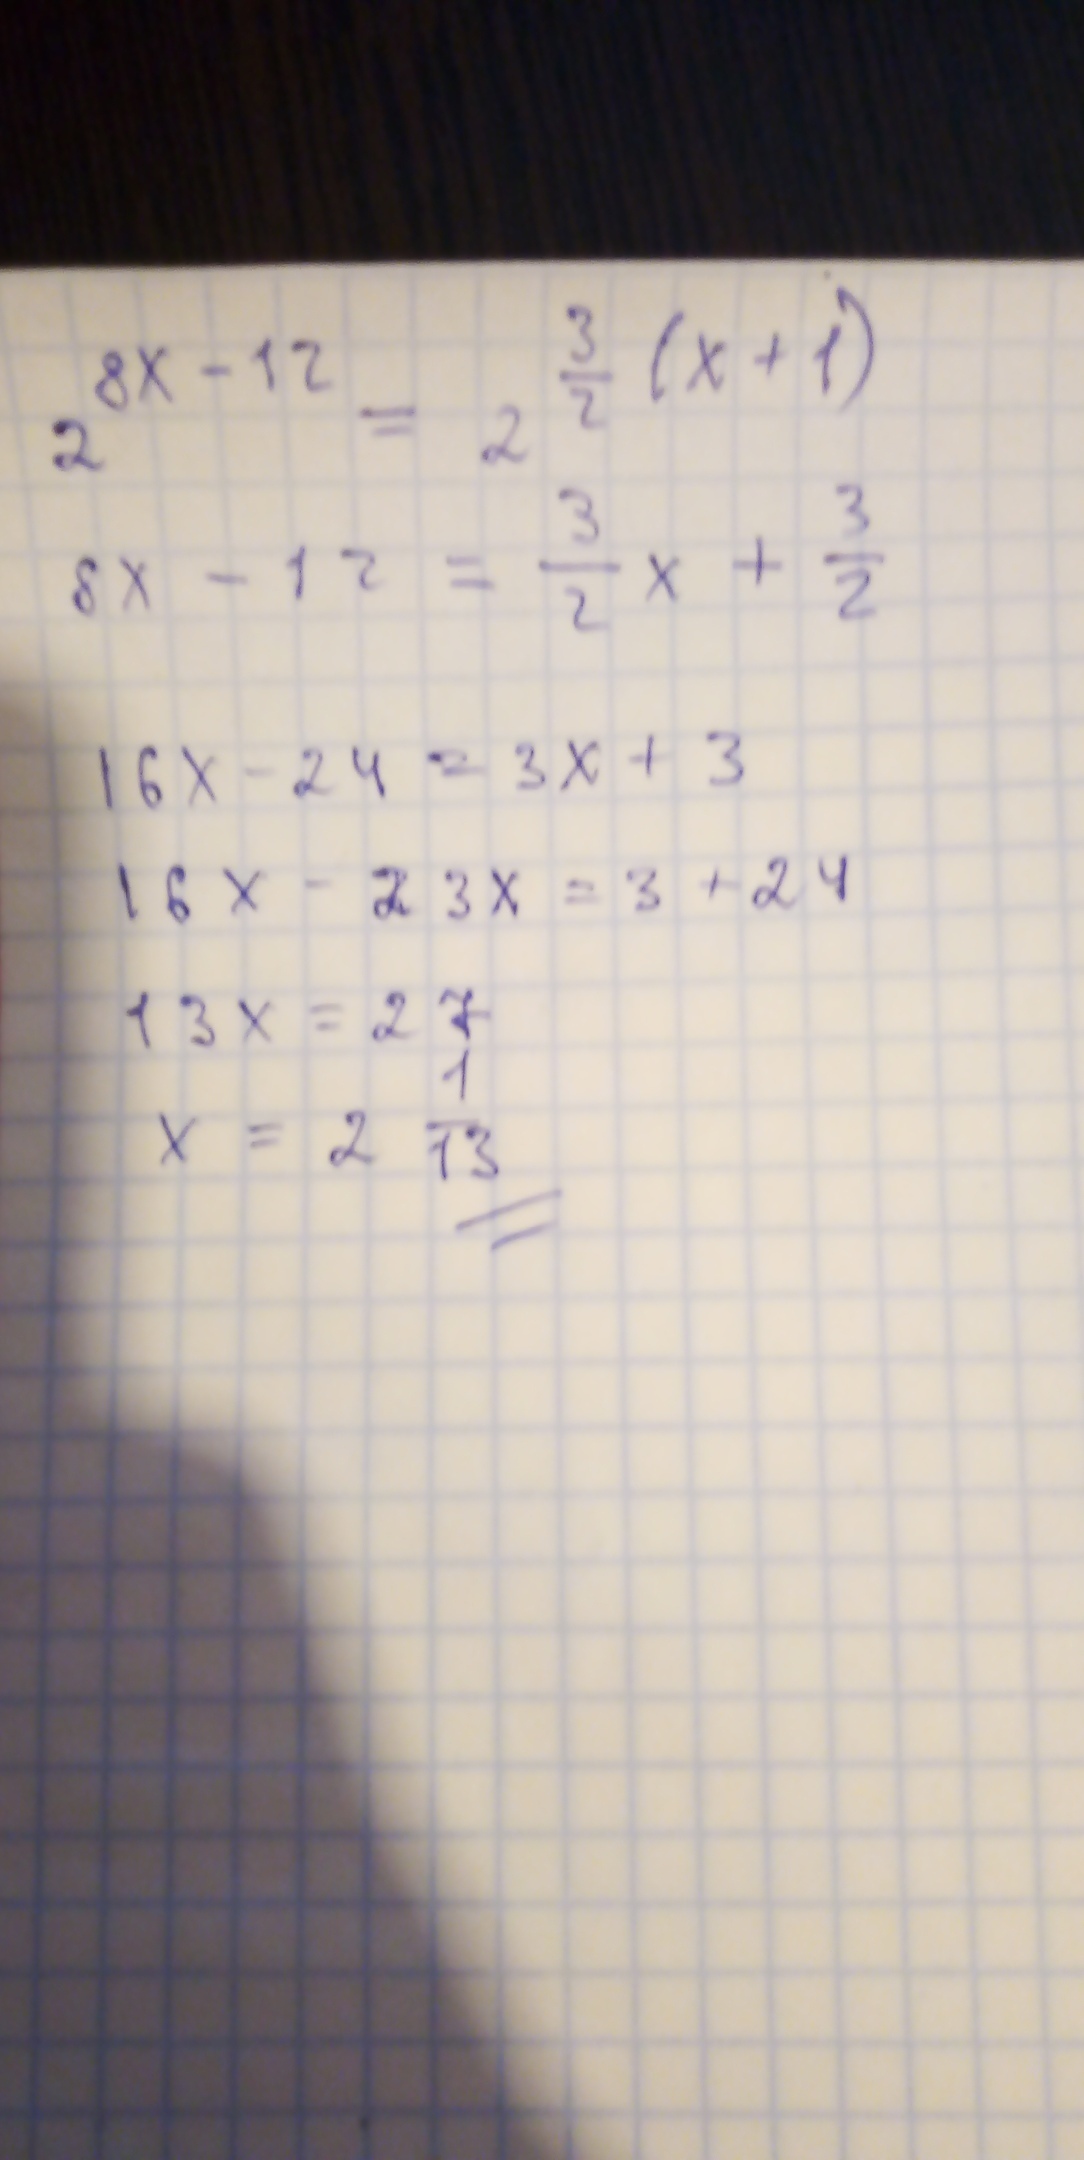 2^{8x-12} = 2^{\frac{3}{2}(x+1)}
8x - 12 = \frac{3}{2}x + \frac{3}{2}
16x - 24 = 3x + 3
16x - 23x = 3 + 24
13x = 27
x = 2\frac{1}{13}